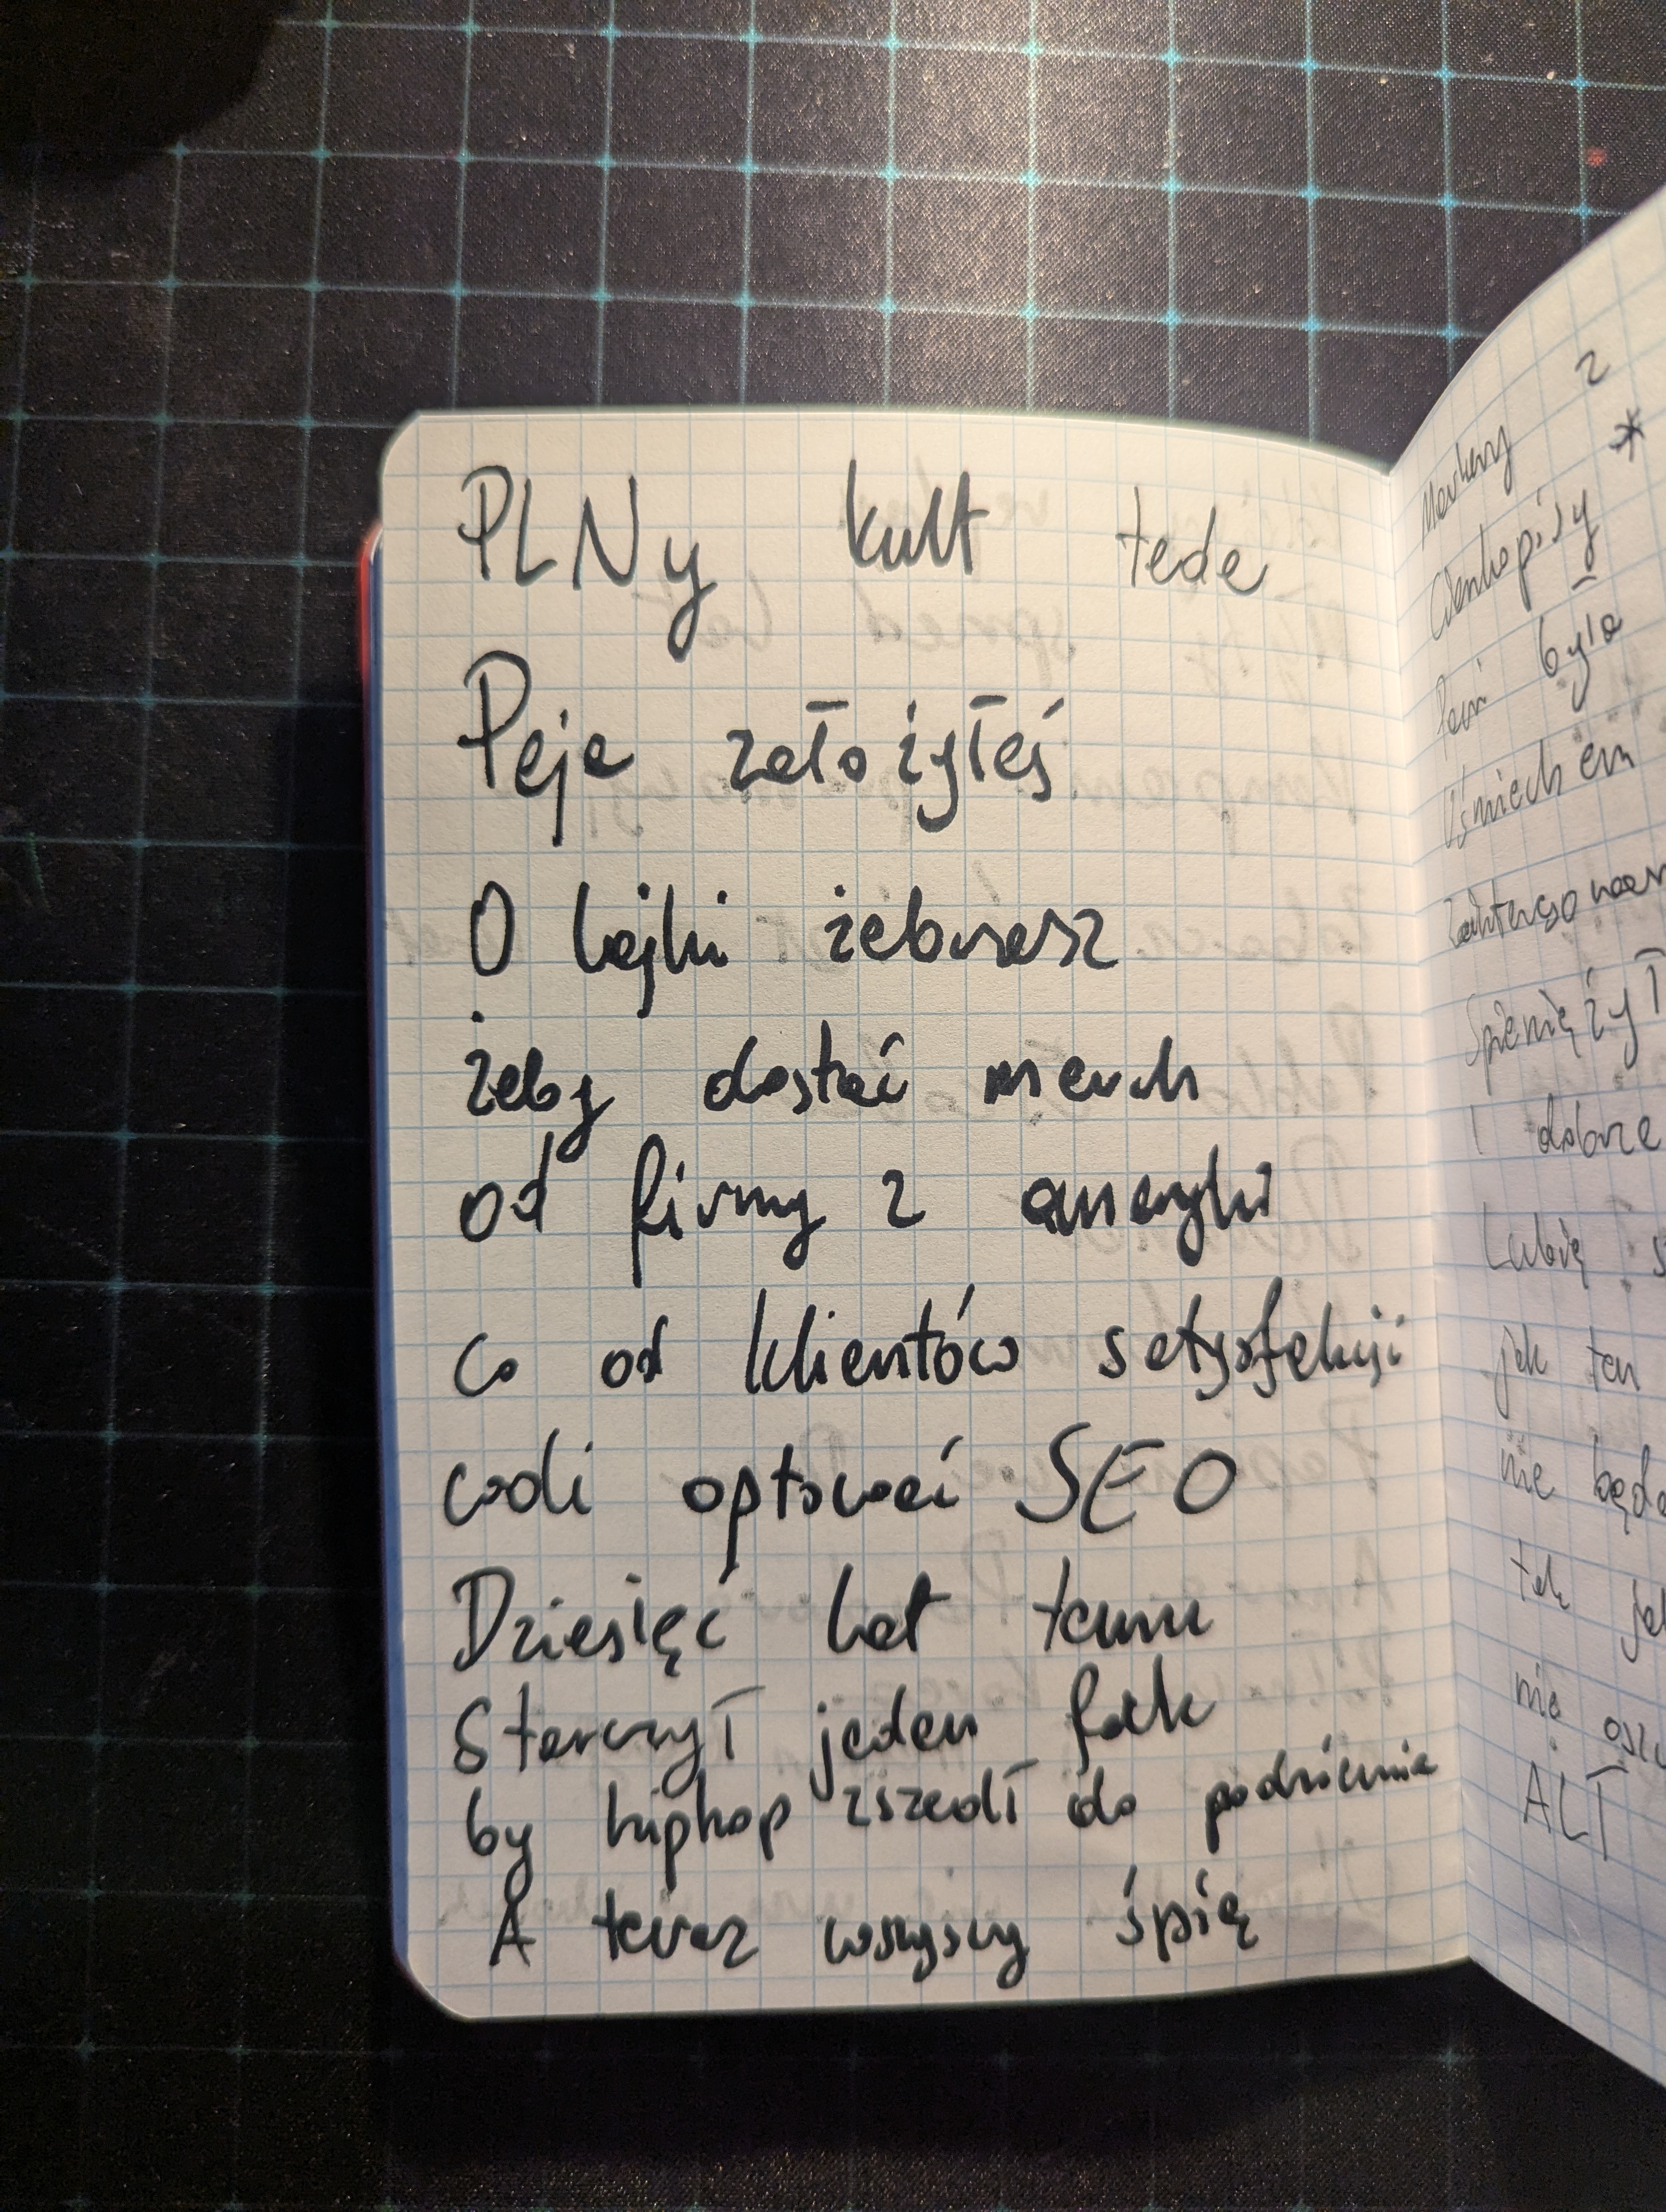 PLNy kult tede
Peja założyłeś
O lajki żebrasz
żeby dostać merch
od firmy z ameryki
co od klientów satysfakcji
woli optować SEO
Dziesięć lat temu
Starczył jeden fak
by hiphop zszedł do podziemia
A teraz wszyscy śpią
Markery z
*
była
Uśmiechem
Spieniężył
I dobrze
Lubię s
jak ten
nie będę
tak jak
nie oszu
ALT